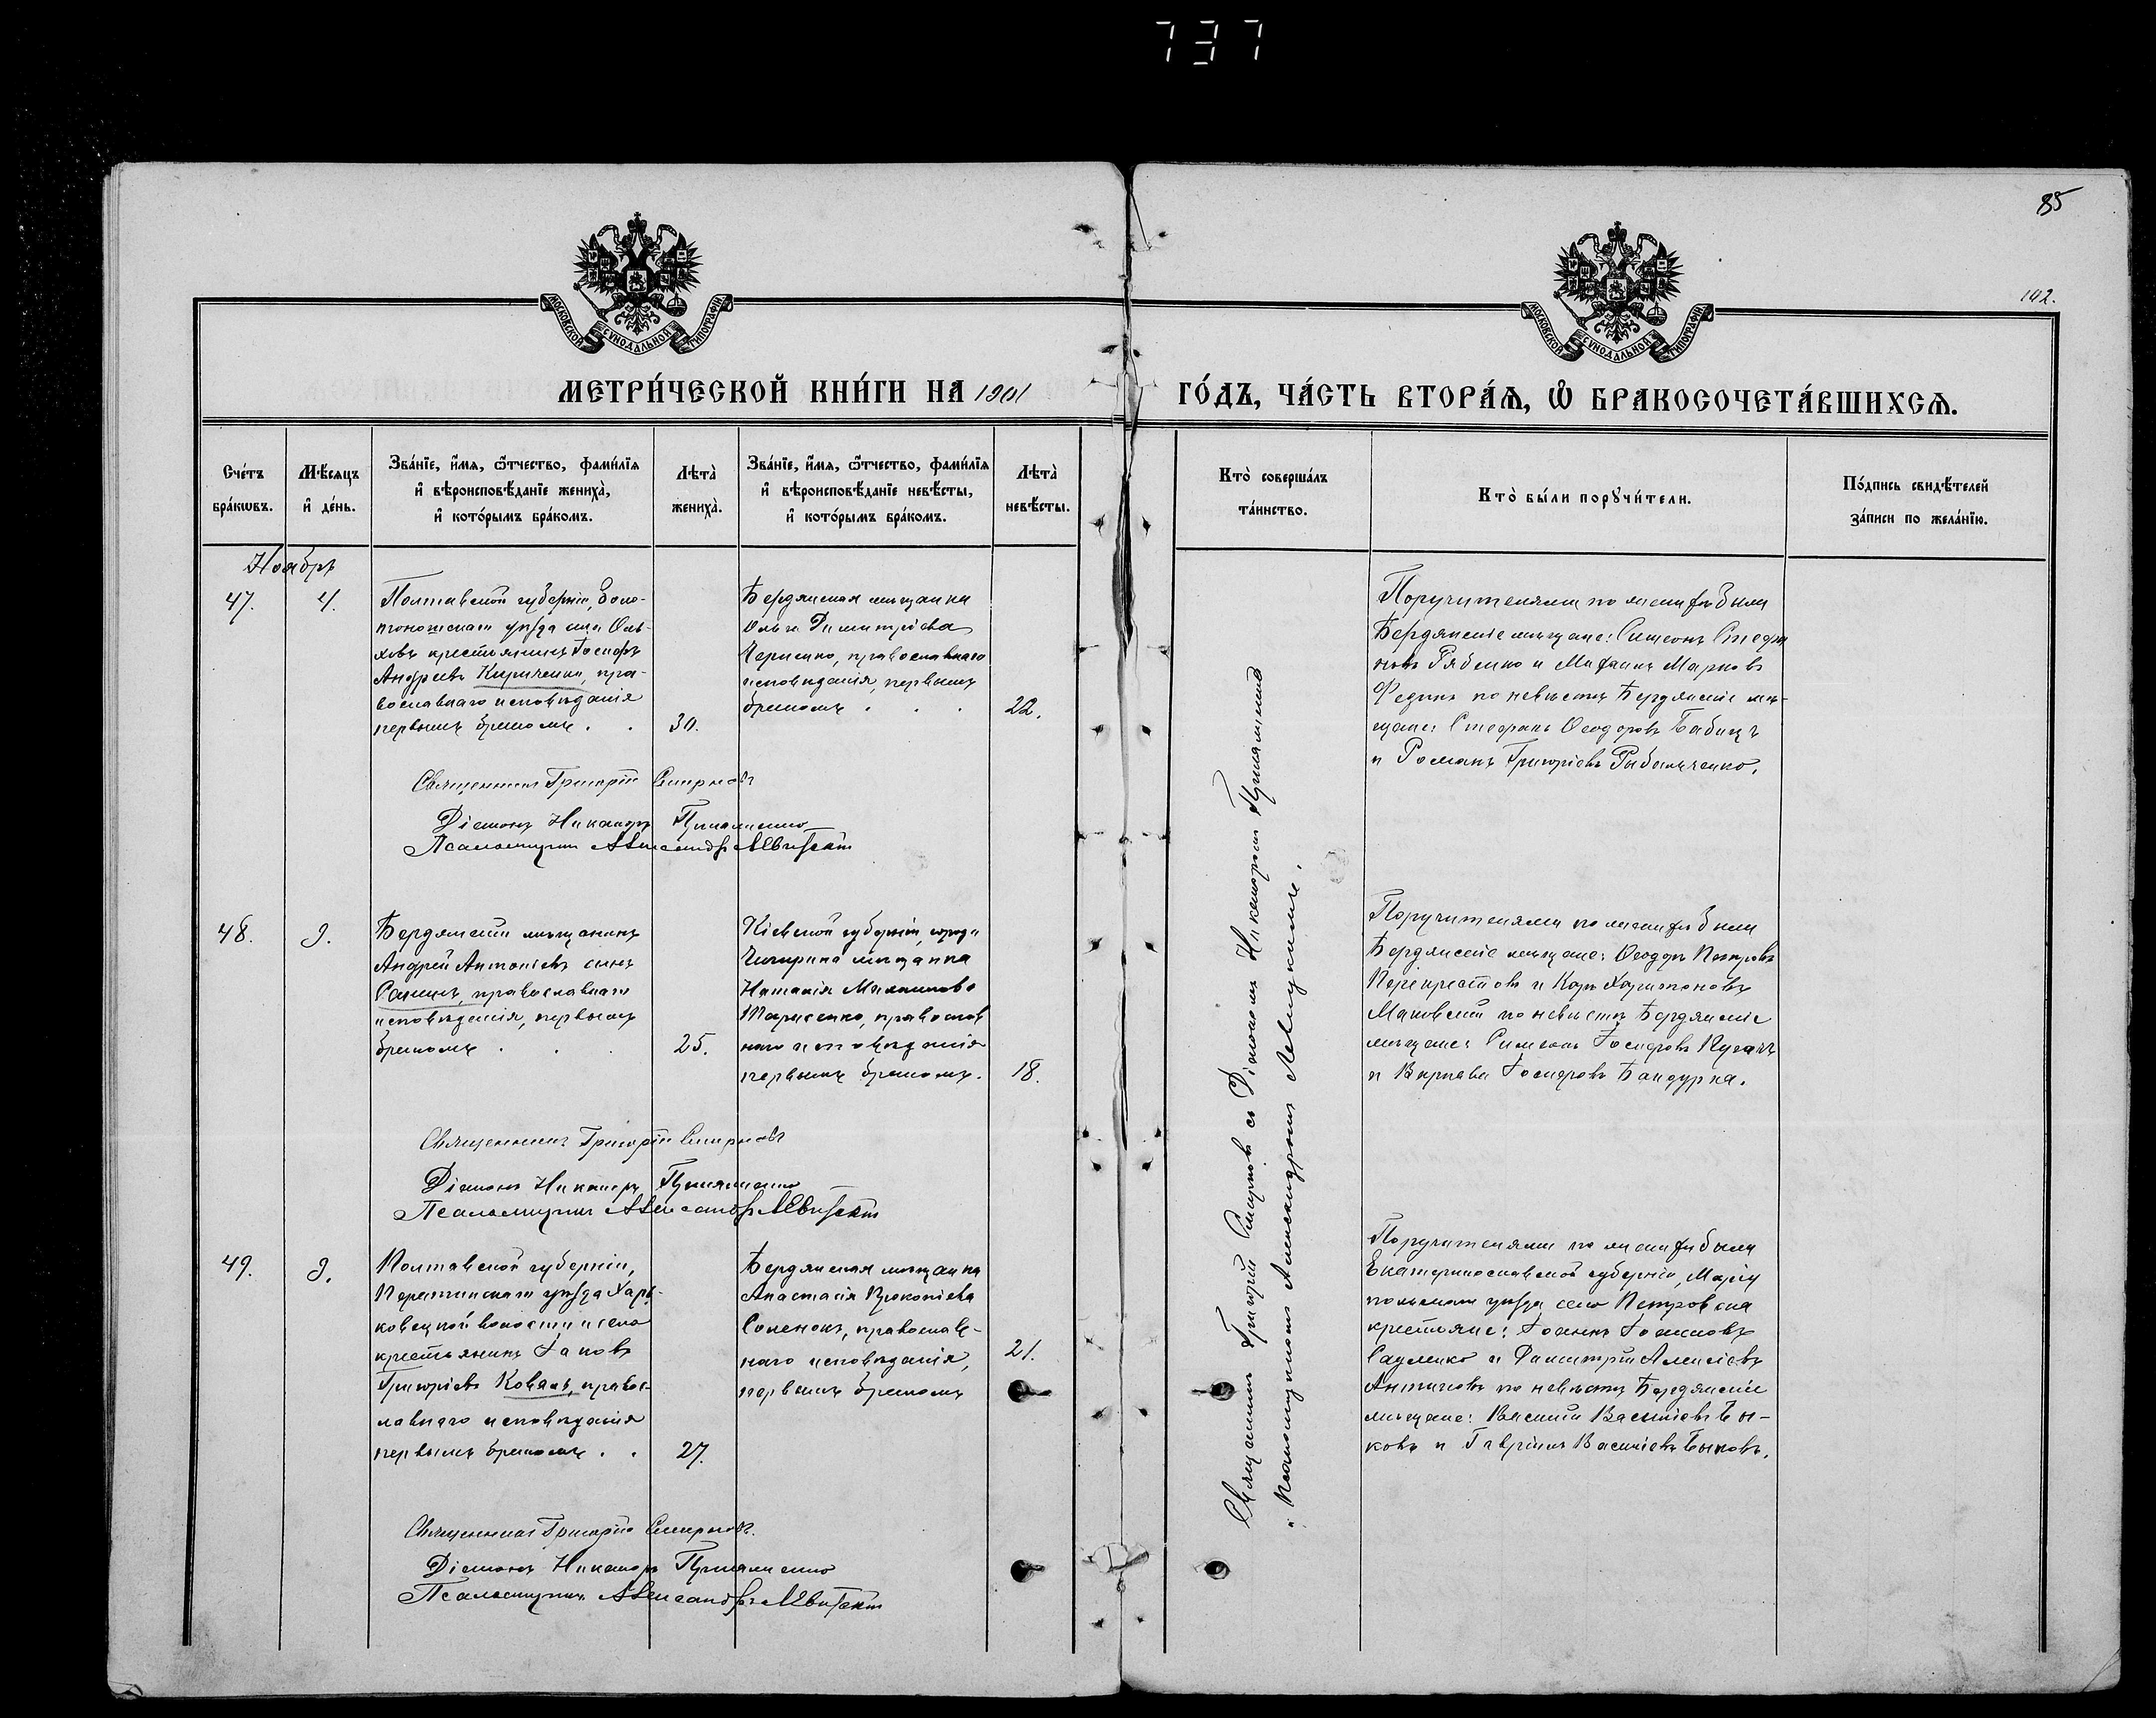 737
85
142.
МОСКОВСКОЙ СѴНОДАЛЬНОЙ ТИПОГРАФІИ
МОСКОВСКОЙ СѴНОДАЛЬНОЙ ТИПОГРАФІИ
МЕТРИ́ЧЕСКОЙ КНИ́ГИ НА 1901
ГО́ДЪ, ЧА́СТЬ ВТОРА́Ѧ, Ѽ БРАКОСОЧЕТА́ВШИХСѦ.
Сче́тъ
бра́кѡвъ.
Мѣ́сѧцъ
и҆ де́нь.
Зва́нїе, и҆́мѧ, ѻ҆́тчество, фами́лїѧ
и҆ вѣроисповѣ́данїе жениха̀,
и҆ кото́рымъ бра́комъ.
Лѣта̀
жениха̀.
Зва́нїе, и҆́мѧ, ѻ҆́тчество, фами́лїѧ
и҆ вѣроисповѣ́данїе невѣ́сты,
и҆ кото́рымъ бра́комъ.
Лѣта̀
невѣ́сты.
Кто̀ соверша́лъ
та́инство.
Кто̀ бы́ли порꙋчи́тели.
По́дпись свидѣ́телей
за́писи по жела́нїю.
Ноябрь
47.
4.
Полтавской губерніи, Золо-
тоношскаго уѣзда села
крестьянинъ Іосифъ
Андреевъ Кириченко, пра-
вославнаго исповѣданія
первымъ бракомъ . .
30.
Бердянская мѣщанка
Ольга Димитріева
Черненко, православнаго
исповѣданія, первымъ
бракомъ . . .
22.
Поручителями по женихѣ были
Бердянскіе мѣщане: Симеонъ Стефа
новъ Рябенко и Михаилъ Марковъ
Фединъ по невѣстѣ Бердянскіе мѣ-
щане: Стефанъ Ѳеодоровъ Бабичъ
и Романъ Григоріевъ Рыбальченко.
Священникъ Григорій Смирновъ
Діаконъ Никаноръ
Псаломщикъ Александръ Левитскій
48.
9.
Бердянскій мѣщанинъ
Андрей Антоніевъ сынъ
православнаго
исповѣданія, первымъ
бракомъ . . .
25.
Кіевской губерніи, города
Чигирина мѣщанка
Наталія Михаилова
Тарасенко, православ
наго исповѣданія
первымъ бракомъ.
18.
Поручителями по женихѣ были
Бердянскіе мѣщане: Ѳеодоръ Петровъ
Перекрестовъ и Карпъ Харитоновъ
Маковскій по невѣстѣ Бердянскіе
мѣщане: Симеонъ Іосифовъ Пугачъ
и Варнава Іосифовъ Бандурка.
Священникъ Григорій Смирновъ
Діаконъ Никаноръ
Псаломщикъ Александръ Левитскій
49.
9.
Полтавской губерніи,
Пирятинскаго уѣзда Харь-
ковецкой волости и села
крестьянинъ Іаковъ
Григоріевъ Коваль, правос-
лавнаго исповѣданія
первымъ бракомъ . .
27.
Бердянская мѣщанка
Анастасія Прокопіева
Соленокъ, православ-
наго исповѣданія,
первымъ бракомъ
21.
Поручителями по женихѣ были
Екатеринославской губерніи, Маріу
польскаго уѣзда села Петровска
крестьяне: Іоаннъ Іоанновъ
и Димитрій Алексіевъ
Антиповъ по невѣстѣ Бердянскіе
мѣщане: Василій Васильевъ Бы-
ковъ и Гавріилъ Васильевъ Быковъ.
Священникъ Григорій Смирновъ.
Діаконъ Никаноръ
Псаломщикъ Александръ Левитскій
Священникъ Григорій Смирновъ съ Діакономъ Никаноромъ
и псаломщикомъ Александромъ Левицкимъ.